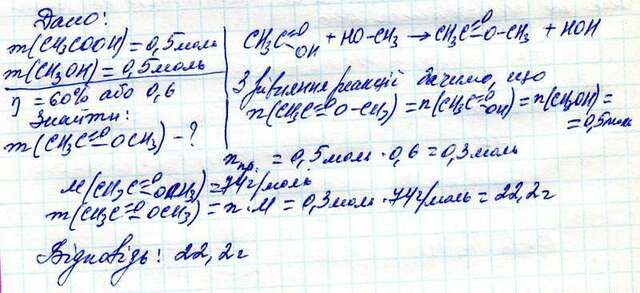 Дано:
m(CH₃COOH) = 0,5 моль
m(CH₃OH) = 0,5 моль
η = 60% або 0,6
Знайти:
m(CH₃C=O OCH₃) - ?
CH₃C=O OH + HO-CH₃ → CH₃C=O O-CH₃ + HOH
З рівняння реакції бачимо, що
n(CH₃C=O O-CH₃) = n(CH₃C=O OH) = n(CH₃OH) =
= 0,5 моль
nпр. = 0,5 моль · 0,6 = 0,3 моль
M(CH₃C=O OCH₃) = 74 г/моль
m(CH₃C=O OCH₃) = n · M = 0,3 моль · 74 г/моль = 22,2 г
Відповідь: 22,2 г